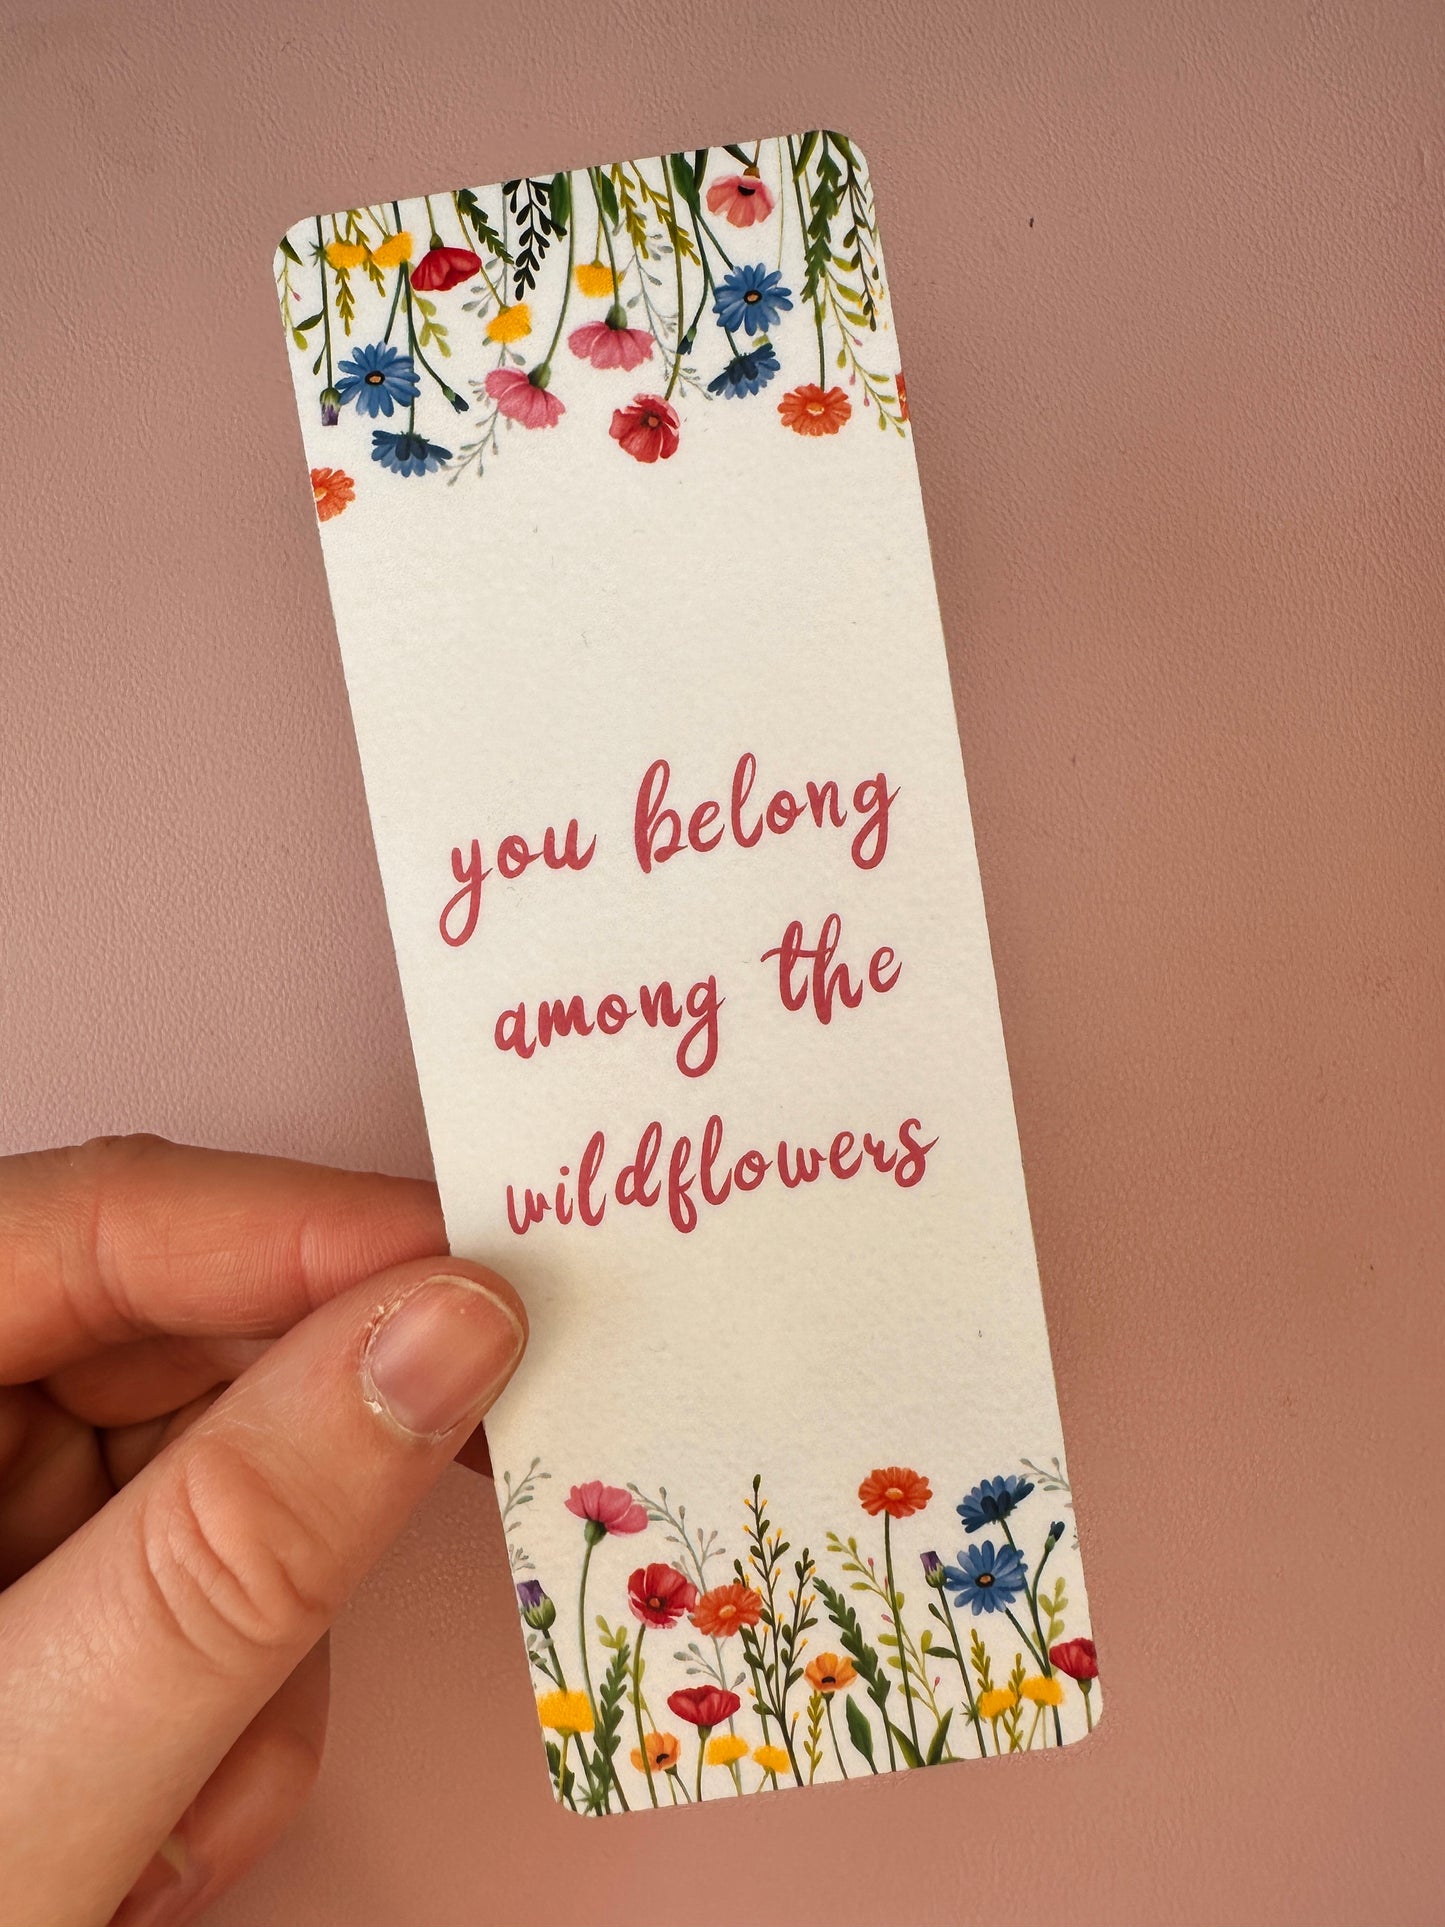 you belong
among the
wildflowers